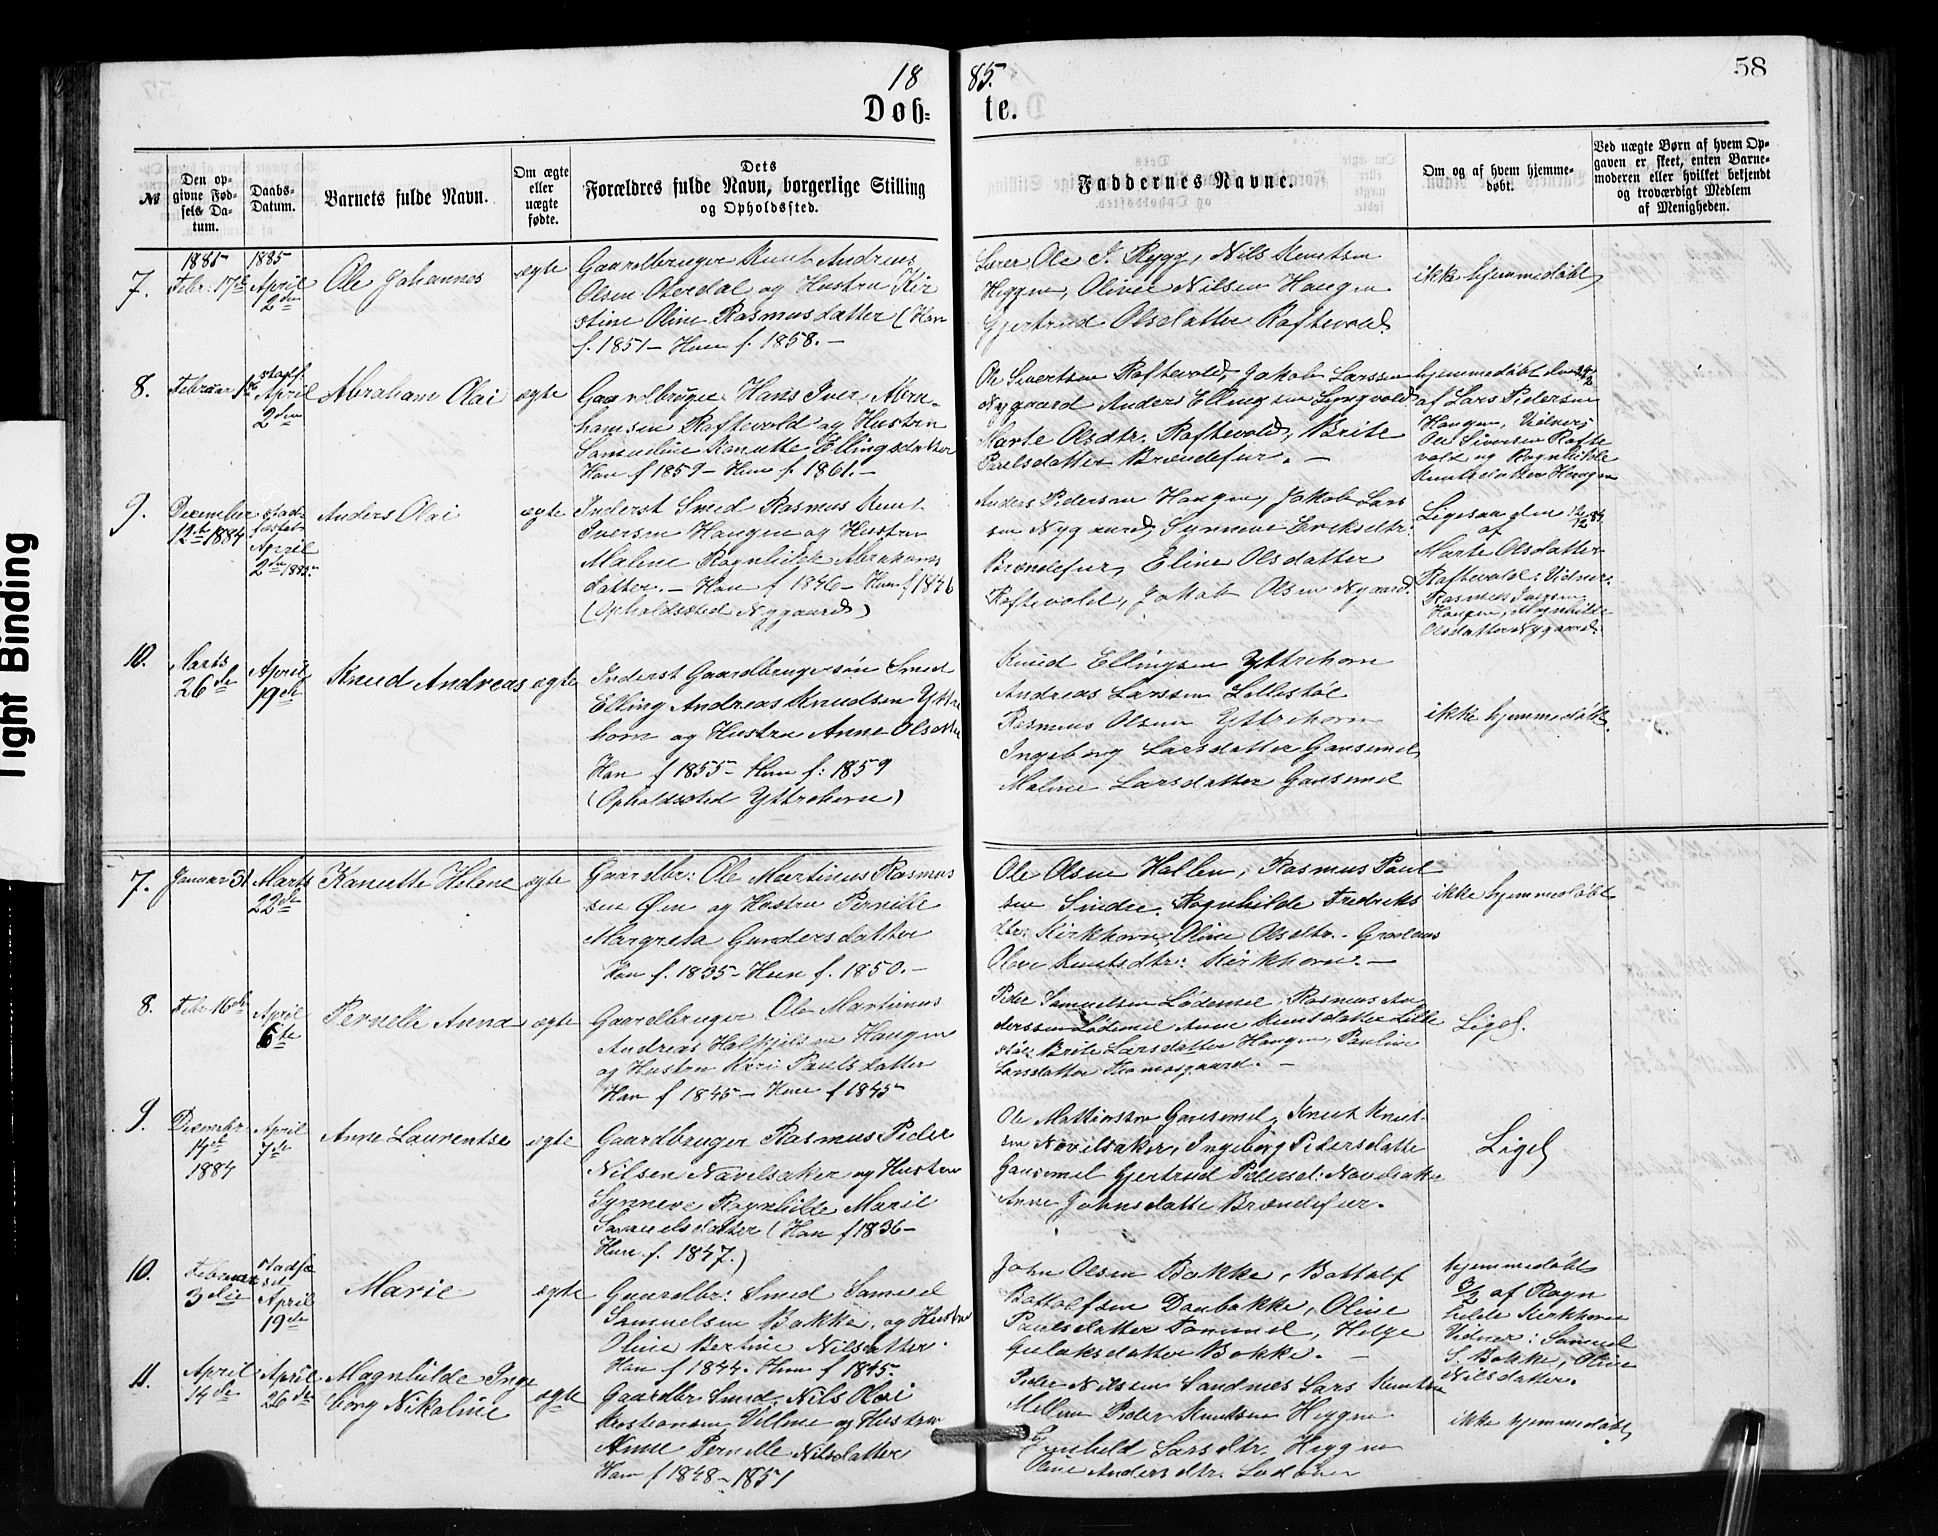 18 85.
58
Døb= te.
Tight Binding
№
Den op-
givne Fød-
sels Da-
tum.
Daabs-
Datum.
Barnets fulde Navn.
Om ægte
eller
uægte
fødte.
Dets
Forældres fulde Navn, borgerlige Stilling
og Opholdssted.
Faddernes Navne.
Om og af hvem hjemme-
døbt.
Ved uægte Børn af hvem Op-
gaven er skeet, enten Barne-
moderen eller hvilket bekjendt
og troværdigt Medlem
af Menigheden.
7.
1885
Febr. 17de
1885
April
2den
Ole Johannes
ægte
Gaardbruger Knut Andreas
Olsen Osterdal og Hustru Kir
stine Oline Rasmusdatter (Han
f. 1851 - Hun f. 1858. -
Ole J. Rygg, Nils Knutsen
Heggen, Oline Nilsen Haugen
Gjertrud Olsdatter Raftevold
ikke hjemmedøbt
8.
Februar
stadf.
April
2den
Abraham Olai
ægte
Gaardbruger Hans Iver Abra-
hamsen Raftevold og Hustru
Samueline Kanutte Ellingsdatter
Han f 1859 - Hun f. 1861. -
Ole Sivertsen Raftevold, Jakob Larssen
Nygaard Anders Ellingsen Lyngvold
Marte Olsdtr. Raftevold, Brite
Paulsdatter Brændefur. -
hjemmedøbt den
af Lars Pedersen
Haugen, Vidner:
Ole Siversen Rafte
vold og Ragnhilde
Knutsdatter Haugen
9.
December
12te 1884
stad-
fæstet
April
2den 1885.
Anders Olai
ægte
Inderst Smed Rasmus Knut
Iversen Haugen og Hustru
Malene Ragnhilde Abrahams
datter. - Han f 1846 - Hun f 1846
(Opholdssted Nygaard)
Anders Pedersen Haugen, Jakob Lars
sen Nygaard, Synneve Eriksdtr.
Brændefur, Eline Olsdatter
Raftevold, Jakob Olsen Nygaard.
Ligesaa den 14/12 84
af
Marte Olsdatter
Raftevold: Vidner:
Rasmus Iversen
Haugen, Magnhilde
Olsdatter Nygaard.
10.
Marts
26de
April
19de
Knud Andreas
ægte
Inderst Gaardbrugersøn Smed
Elling Andreas Knudsen Yttre
horn og Hustru Anne Olsdtter
Han f 1855 - Hun f: 1859
(Opholdssted Yttrehorn)
Knud Ellingsen Yttrehorn
Andreas Larssen Lillestøl
Rasmus Olsen Yttrehorn
Ingeborg Larsdatter Gausemel
Maline Larsdatter Gausemel
ikke hjemmedøbt.
7.
Januar 31
Marts
22de
Kanutte Helene
ægte
Gaardbr: Ole Martinus Rasmus
sen Øen og Hustru Pernille
Margreta Gundersdatter
Han f. 1835 - Hun f. 1850. -
Ole Olsen Hallen, Rasmus Paul
sen Sindre. Ragnhilde Fredriks
dtr: Kirkhorn, Oline Olsdtr.
Knutsdtr: Kirkhorn. -
ikke hjemmedøbt
8.
Febr. 16de
April
6te
Pernelle Anna
ægte
Gaardbruger Ole Martinus
Andreas Halkjelsen Haugen
og Hustru Kari Paulsdatter
Han f 1845 - Hun f 1845
Peder Samuelsen Lødemel, Rasmus An
derssen Lødemel Anne Knutsdatter Lille
støl: Brite Larsdatter Haugen, Pauline
Larsdatter Tomasgaard. -
Ligel.
9.
December
14de
1884
April
7de
Anne Laurentse
ægte
Gaardbruger Rasmus Peder
Nilsen Navelsaker og Hustru
Synneve Ragnhilde Marie
Samuelsdatter (Han f 1836 -
Hun f. 1847.)
Ole Mattiassen Gausemel, Knut Knut-
sen Navelsaker, Ingeborg Pedersdatte
Gausemel Gjertrud Pedersd: Navelsaker
Anne Johnsdatte Brændefur.
Ligel
10.
Februar
3die
stadfæ
stet
April
19de
Marie
ægte
Gaardbr: Smed Samuel
Samuelsen Bakke, og Hustru
Oline Bertine Nilsdatter.
Han f 1844. Hun f 1845.
John Olsen Bakke, Bottolf
Bottolfsen Daubakke, Oline
Paulsdatter Tommel, Helge
Gulaksdatter Bakke. -
hjemmedøbt
3/2 af Ragn
hilde Kirkhorn
Vidner: Samuel
S. Bakke, Oline
Nilsdatter.
11.
April
14de
April
26de
Magnhilde Inge
borg Nikoline
ægte
Gaardbr Smed. Nils Olai
Kristiansen Velme og Hustru
Anne Pernelle Nilsdatter
Han f 1848 - 1851
Peder Nilssen Sandnes Lars Knutsen
Mellem Peder Knutsen Heggen
Gunhild Larsdtr. Heggen
Oline Andersdtr.
ikke hjemmedøbt